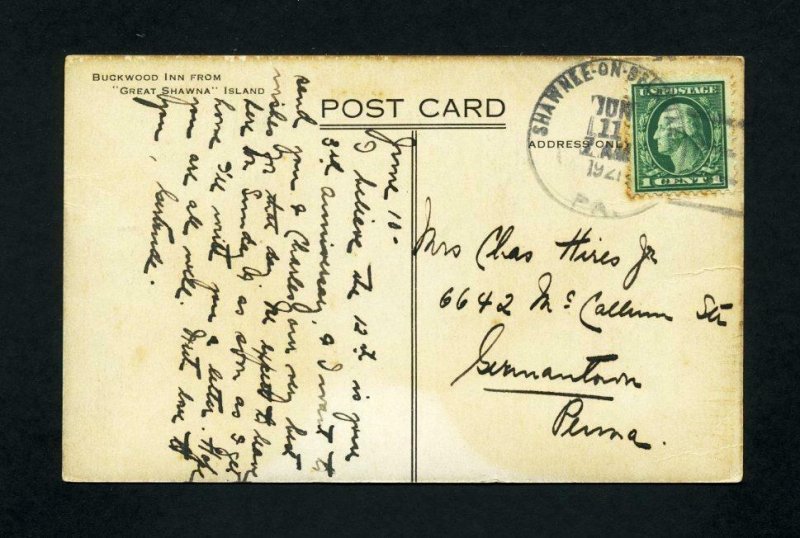 BUCKWOOD INN FROM
"GREAT SHAWNA" ISLAND
POST CARD
ADDRESS ONLY
SHAWNEE-ON-DE
JUN
11
AM
1921
PA.
U.S. POSTAGE
1 CENT 1
June 10-
I believe the 12th is your
3rd anniversary, & I want to
send you & Charles our very best
wishes for that day. We expect to leave
here for Sunday & as soon as I get
home I'll write you a letter. Hope
you are all well. Much love to
you,
Mrs Chas Hires Jr
6642 Mc Callum Str
Germantown
Penna.